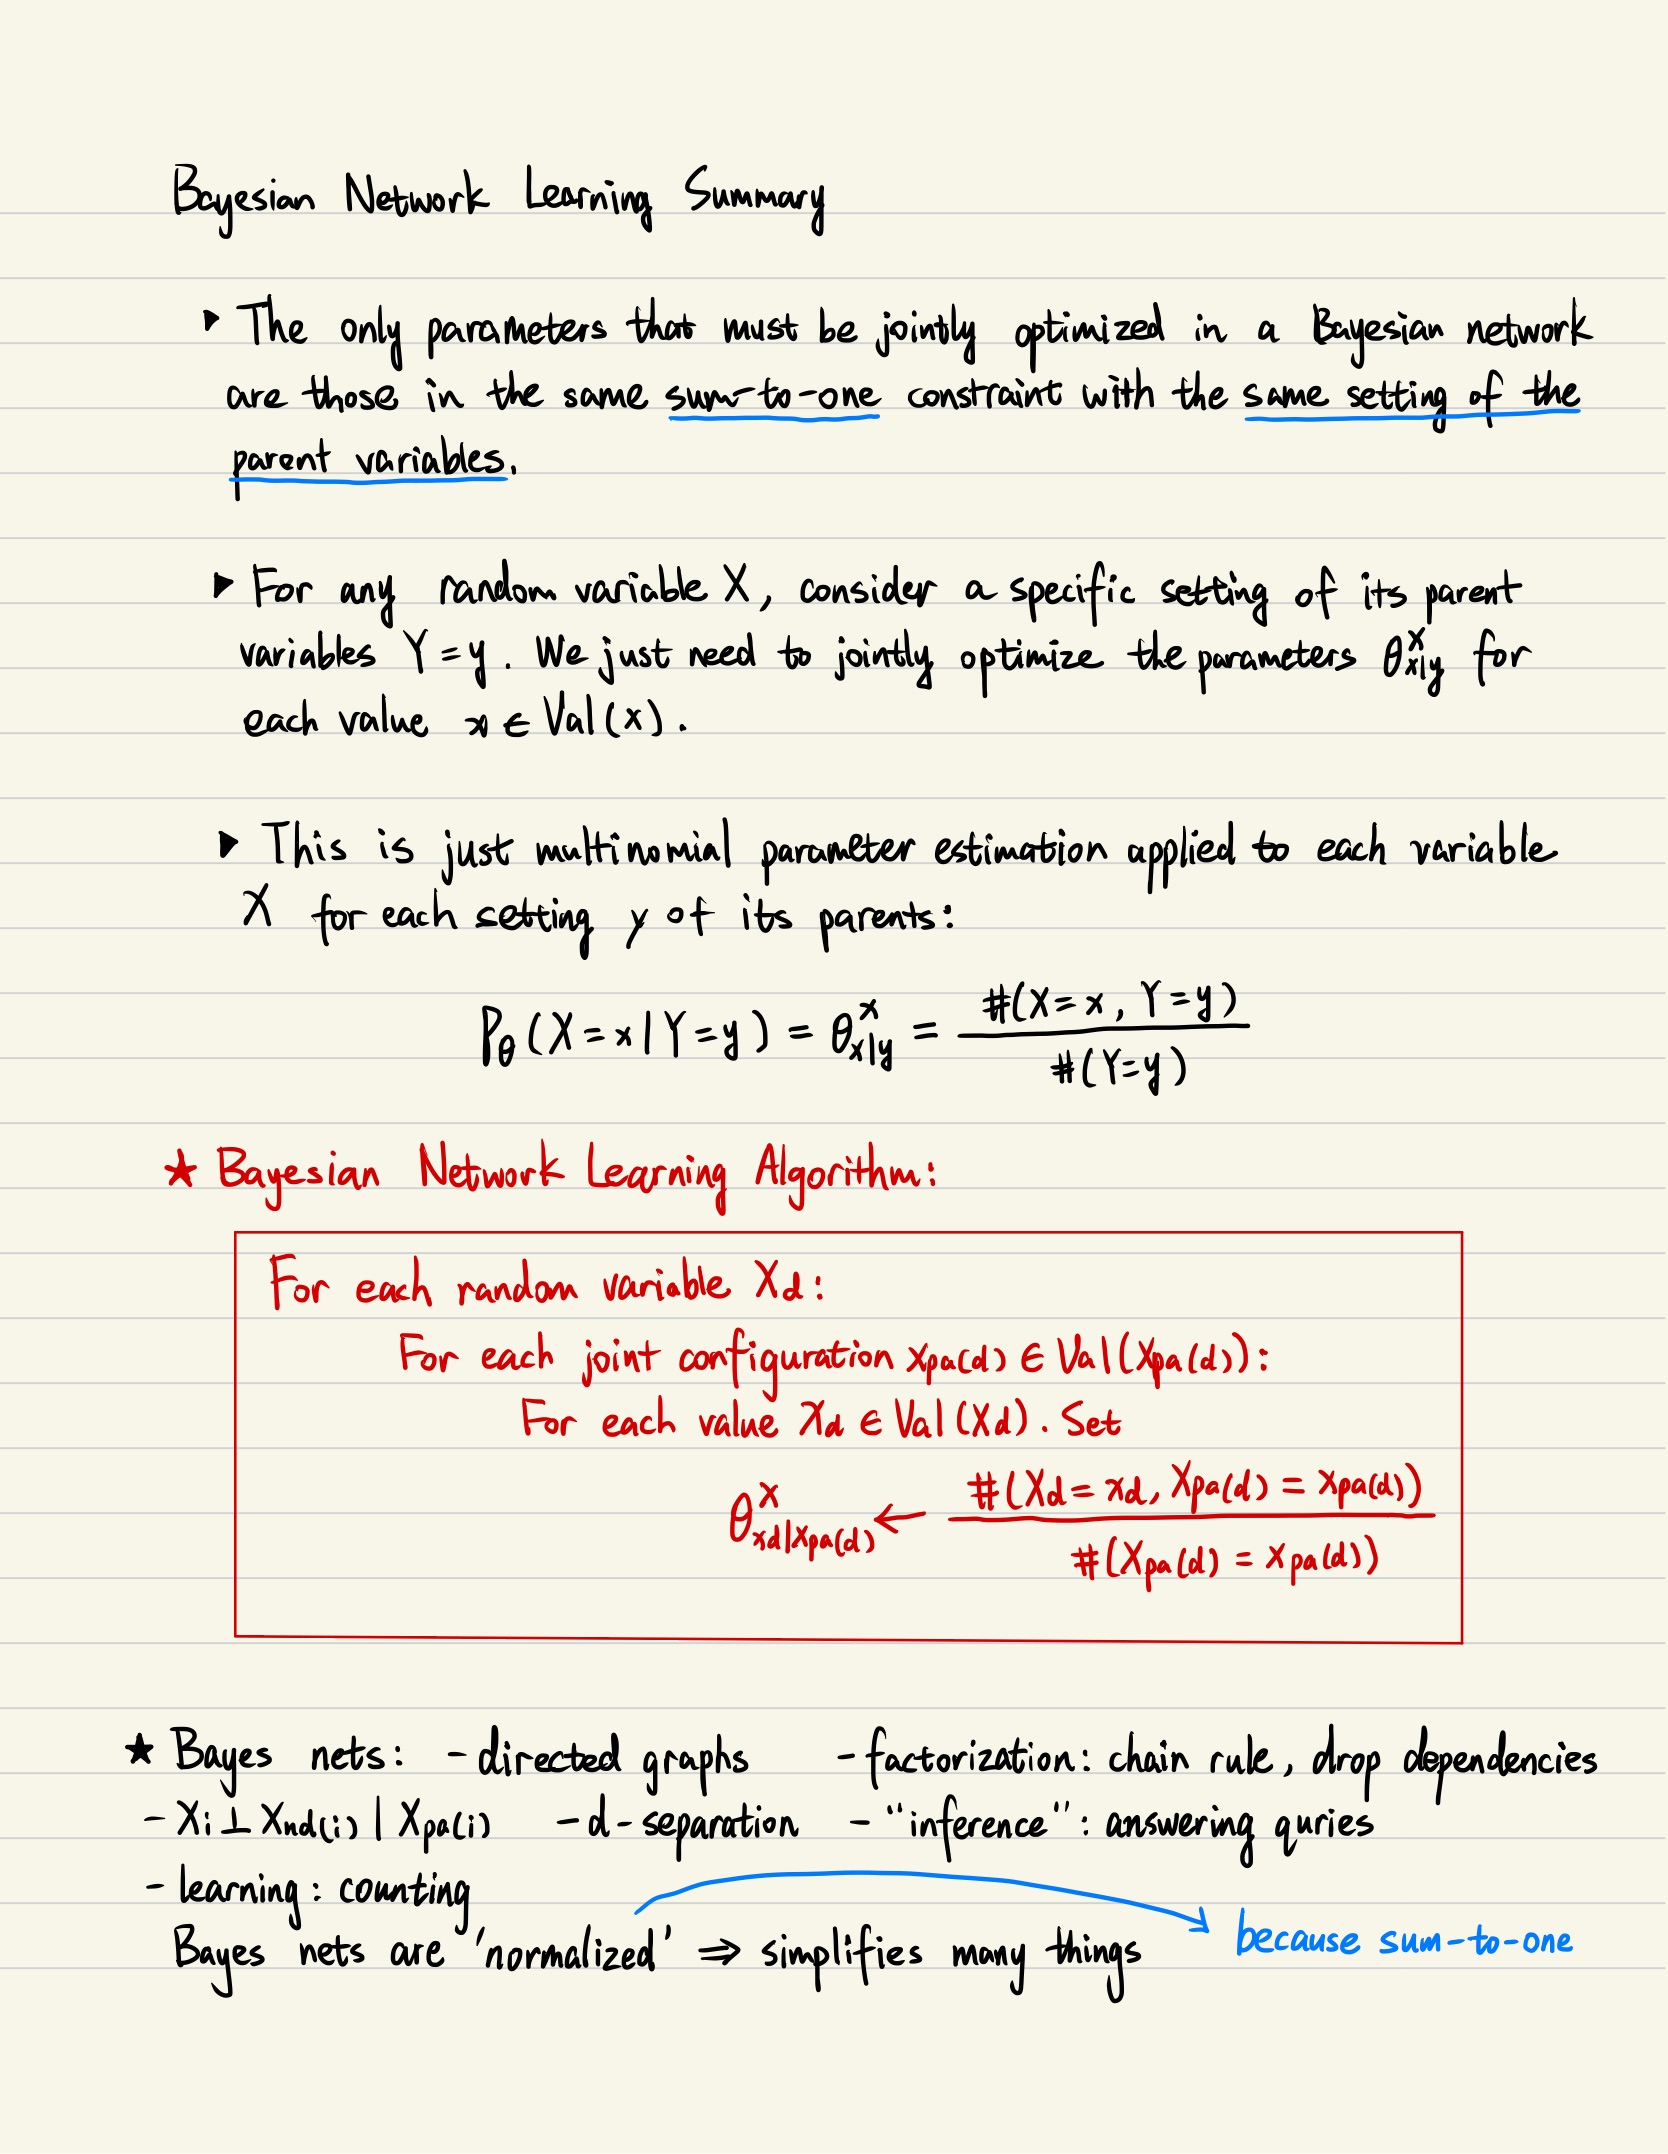 Bayesian Network Learning Summary
▸ The only parameters that must be jointly optimized in a Bayesian network
are those in the same sum-to-one constraint with the same setting of the
parent variables.
▸ For any random variable X, consider a specific setting of its parent
variables Y = y. We just need to jointly optimize the parameters θ^X_{x|y} for
each value x ∈ Val(x).
▸ This is just multinomial parameter estimation applied to each variable
X for each setting y of its parents:
P_θ(X = x | Y = y) = θ^X_{x|y} = #(X = x, Y = y) / #(Y = y)
★ Bayesian Network Learning Algorithm:
For each random variable X_d:
For each joint configuration x_{pa(d)} ∈ Val(X_{pa(d)}):
For each value x_d ∈ Val(X_d). Set
θ^X_{x_d|x_{pa(d)}} ← #(X_d = x_d, X_{pa(d)} = x_{pa(d)}) / #(X_{pa(d)} = x_{pa(d)})
★ Bayes nets: - directed graphs - factorization: chain rule, drop dependencies
- X_i ⊥ X_{nd(i)} | X_{pa(i)} - d-separation - "inference": answering quries
- learning: counting
Bayes nets are 'normalized' ⇒ simplifies many things because sum-to-one